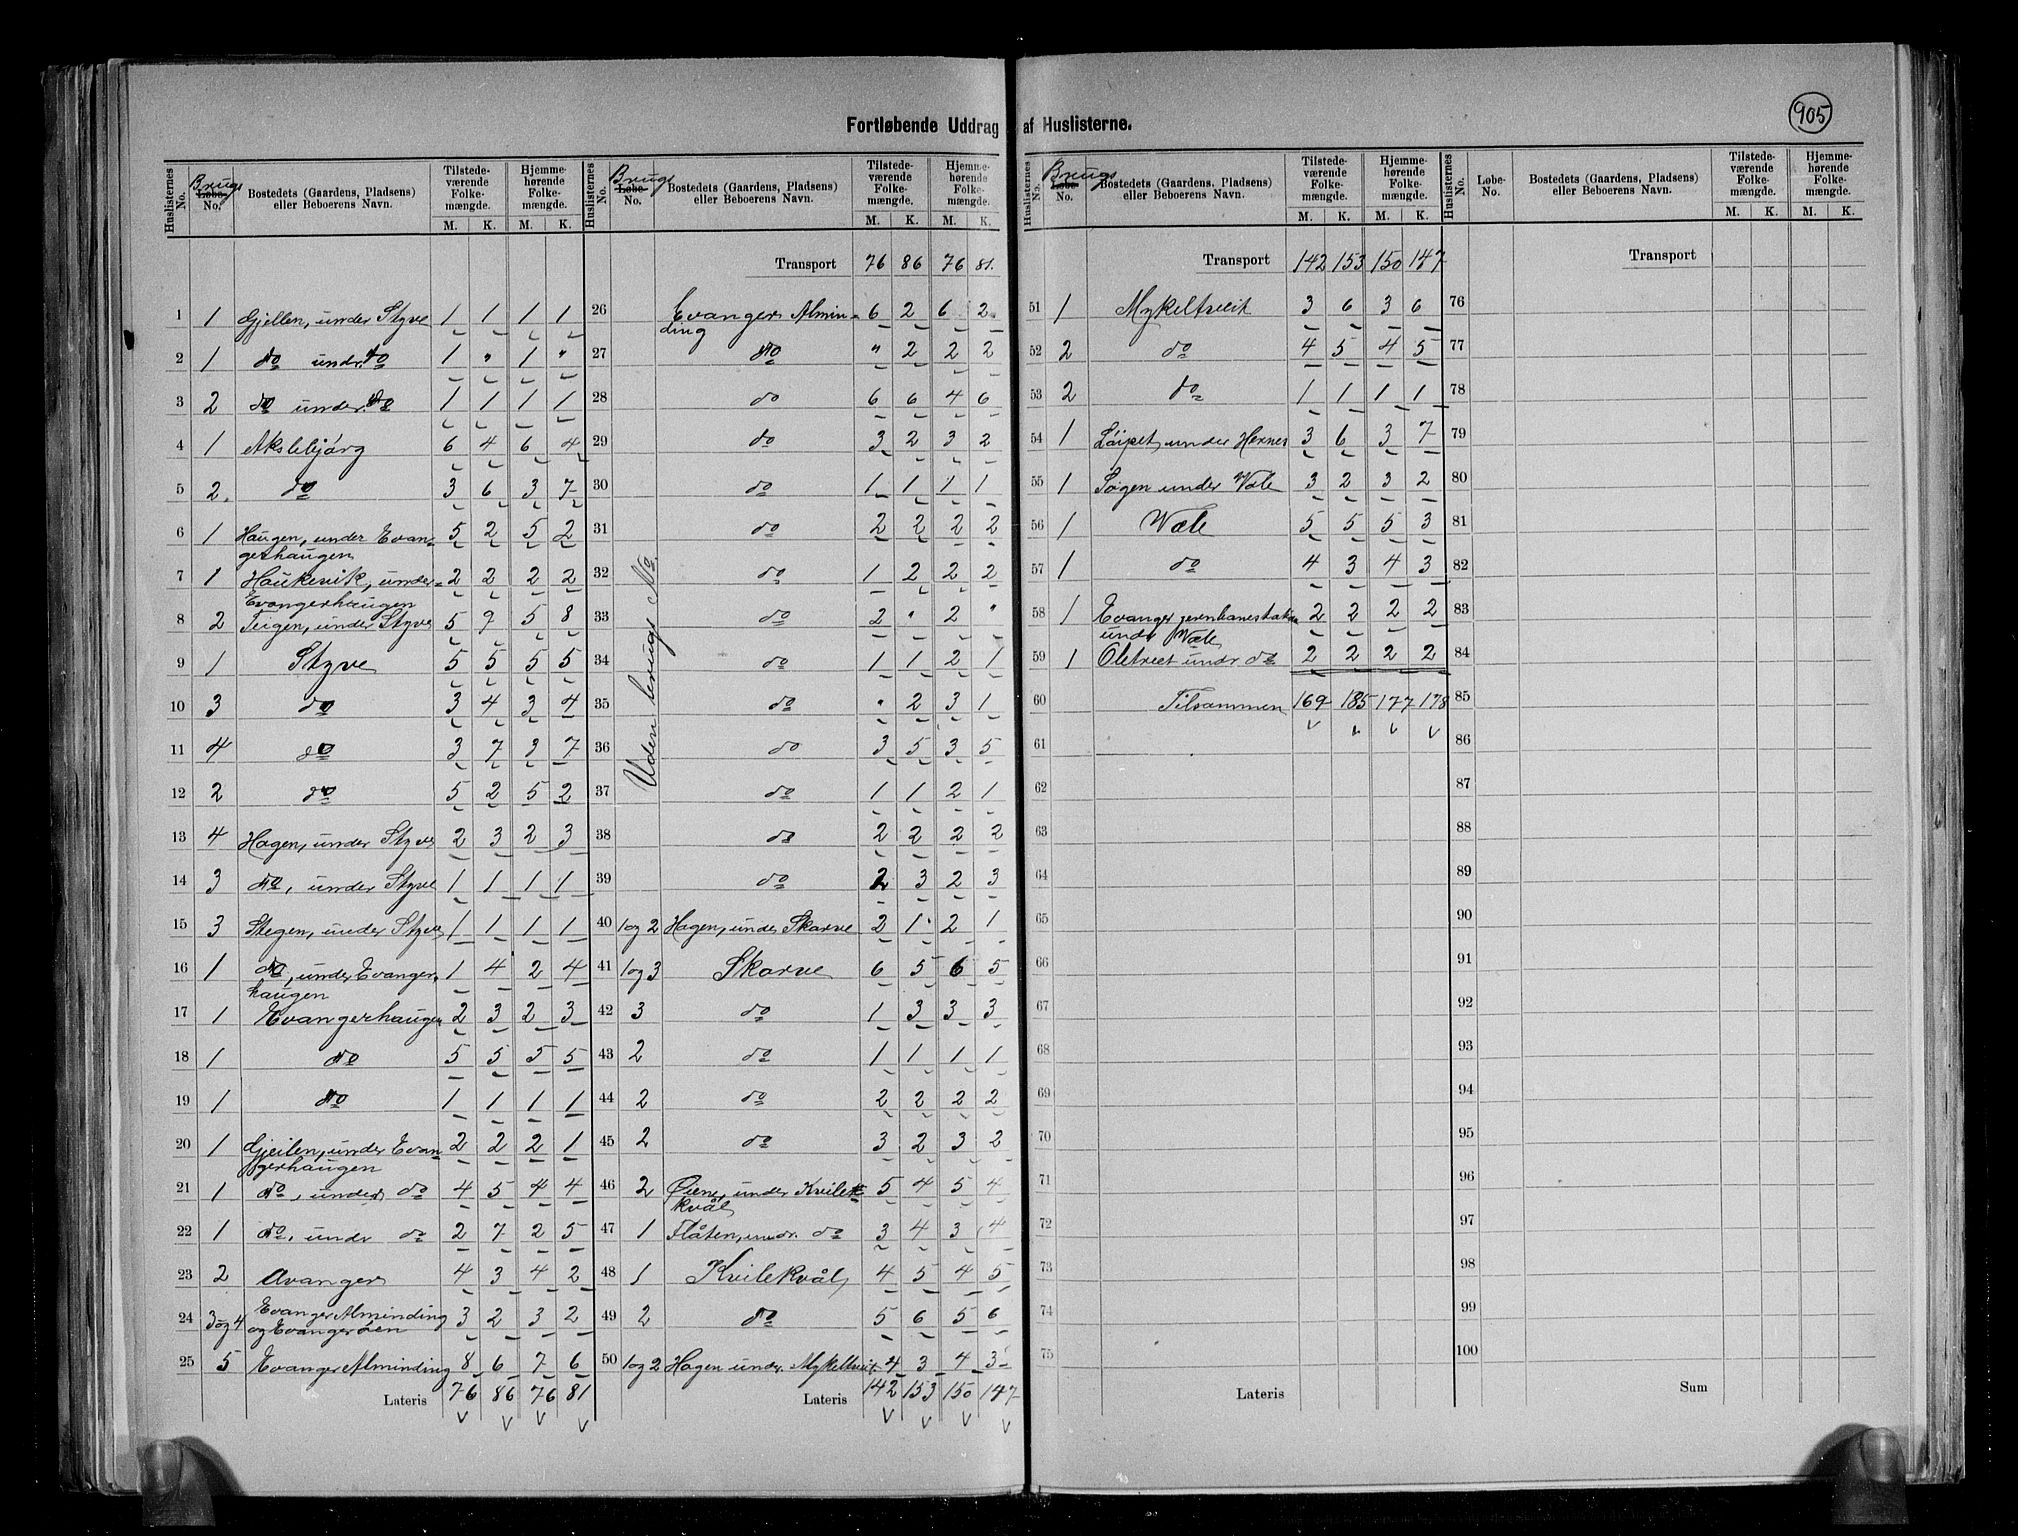 905
Fortløbende Uddrag af Huslisterne.
Huslisternes No. | Brugs Løbe-No. | Bostedets (Gaardens, Pladsens) eller Beboerens Navn. | Tilstedeværende Folkemængde. M. K. | Hjemmehørende Folkemængde. M. K.
1 1 Gjellen, under Styve 1 1 1 1
2 1 do under do 1 " 1 "
3 2 do under do 1 1 1 1
4 1 Akslebjørg 6 4 6 4
5 2. do 3 6 3 7
6 1 Haugen, under Evan-
gerhaugen 5 2 5 2
7 1 Haukevik, under
Evangerhaugen 2 2 2 2
8 2 Teigen, under Styve 5 7 5 8
9 1 Styve 5 5 5 5
10 3 do 3 4 3 4
11 4 do 3 7 3 7
12 2 do 5 2 5 2
13 4 Hagen, under Styve 2 3 2 3
14 3 do, under Styve 1 1 1 1
15 3 Stegen, under Styve 1 1 1 1
16 1 do, under Evanger-
haugen 1 4 2 4
17 1 Evangerhaugen 2 3 2 3
18 1 do 5 5 5 5
19 1 do 1 1 1 1
20 1 Gjeilen, under Evan-
gerhaugen 2 2 2 1
21 1 do, under do 4 5 4 4
22 1 do, under do 2 7 2 5
23 2 Avanger 4 3 4 2
24 3 og 4 Evanger Alminding
og Evangerøen 3 2 3 2
25 5 Evanger Alminding 8 6 7 6
Lateris 76 86 76 81
Huslisternes No. | Brugs Løbe-No. | Bostedets (Gaardens, Pladsens) eller Beboerens Navn. | Tilstedeværende Folkemængde. M. K. | Hjemmehørende Folkemængde. M. K.
Transport 76 86 76 81.
Uden brugs No.
26 Evanger Almin-
ding 6 2 6 2
27 do " 2 2 2
28 do 6 6 4 6
29 do 3 2 3 2
30 do 1 1 1 1
31 do 2 2 2 2
32 do 1 2 2 2
33 do 2 " 2 "
34 do 1 1 2 1
35 do " 2 3 1
36 do 3 5 3 5
37 do 1 1 2 1
38 do 2 2 2 2
39 do 2 3 2 3
40 1 og 2 Hagen, under Skorve 2 1 2 1
41 1 og 3 Skorve 6 5 6 5
42 3 do 1 3 3 3
43 2 do 1 1 1 1
44 2 do 2 2 2 2
45 2 do 3 2 3 2
46 2 Øiene, under Kvile-
kvål 5 4 5 4
47 1 Flåten, undr. do 3 4 3 4
48 1 Kvilekvål 4 5 4 5
49 2 do 5 6 5 6
50 1 og 2 Hagen under Mykeltveit 4 3 4 3
Lateris 142 153 150 147
Huslisternes No. | Brugs Løbe-No. | Bostedets (Gaardens, Pladsens) eller Beboerens Navn. | Tilstedeværende Folkemængde. M. K. | Hjemmehørende Folkemængde. M. K.
Transport 142 153 150 147
51 1 Mykeltveit 3 6 3 6
52 2 do 4 5 4 5
53 2 do 1 1 1 1
54 1 Løipet, under Hernes 3 6 3 7
55 1 Søgen under Væle 3 2 3 2
56 1 Væle 5 5 5 3
57 1 do 4 3 4 3
58 1 Evanger jernbanestation
undr Væle 2 2 2 2
59 1 Oletveet undr do 2 2 2 2
60 Tilsammen 169 185 177 178
61
62
63
64
65
66
67
68
69
70
71
72
73
74
75
Lateris
Huslisternes No. | Løbe-No. | Bostedets (Gaardens, Pladsens) eller Beboerens Navn. | Tilstedeværende Folkemængde. M. K. | Hjemmehørende Folkemængde. M. K.
Transport
76
77
78
79
80
81
82
83
84
85
86
87
88
89
90
91
92
93
94
95
96
97
98
99
100
Sum